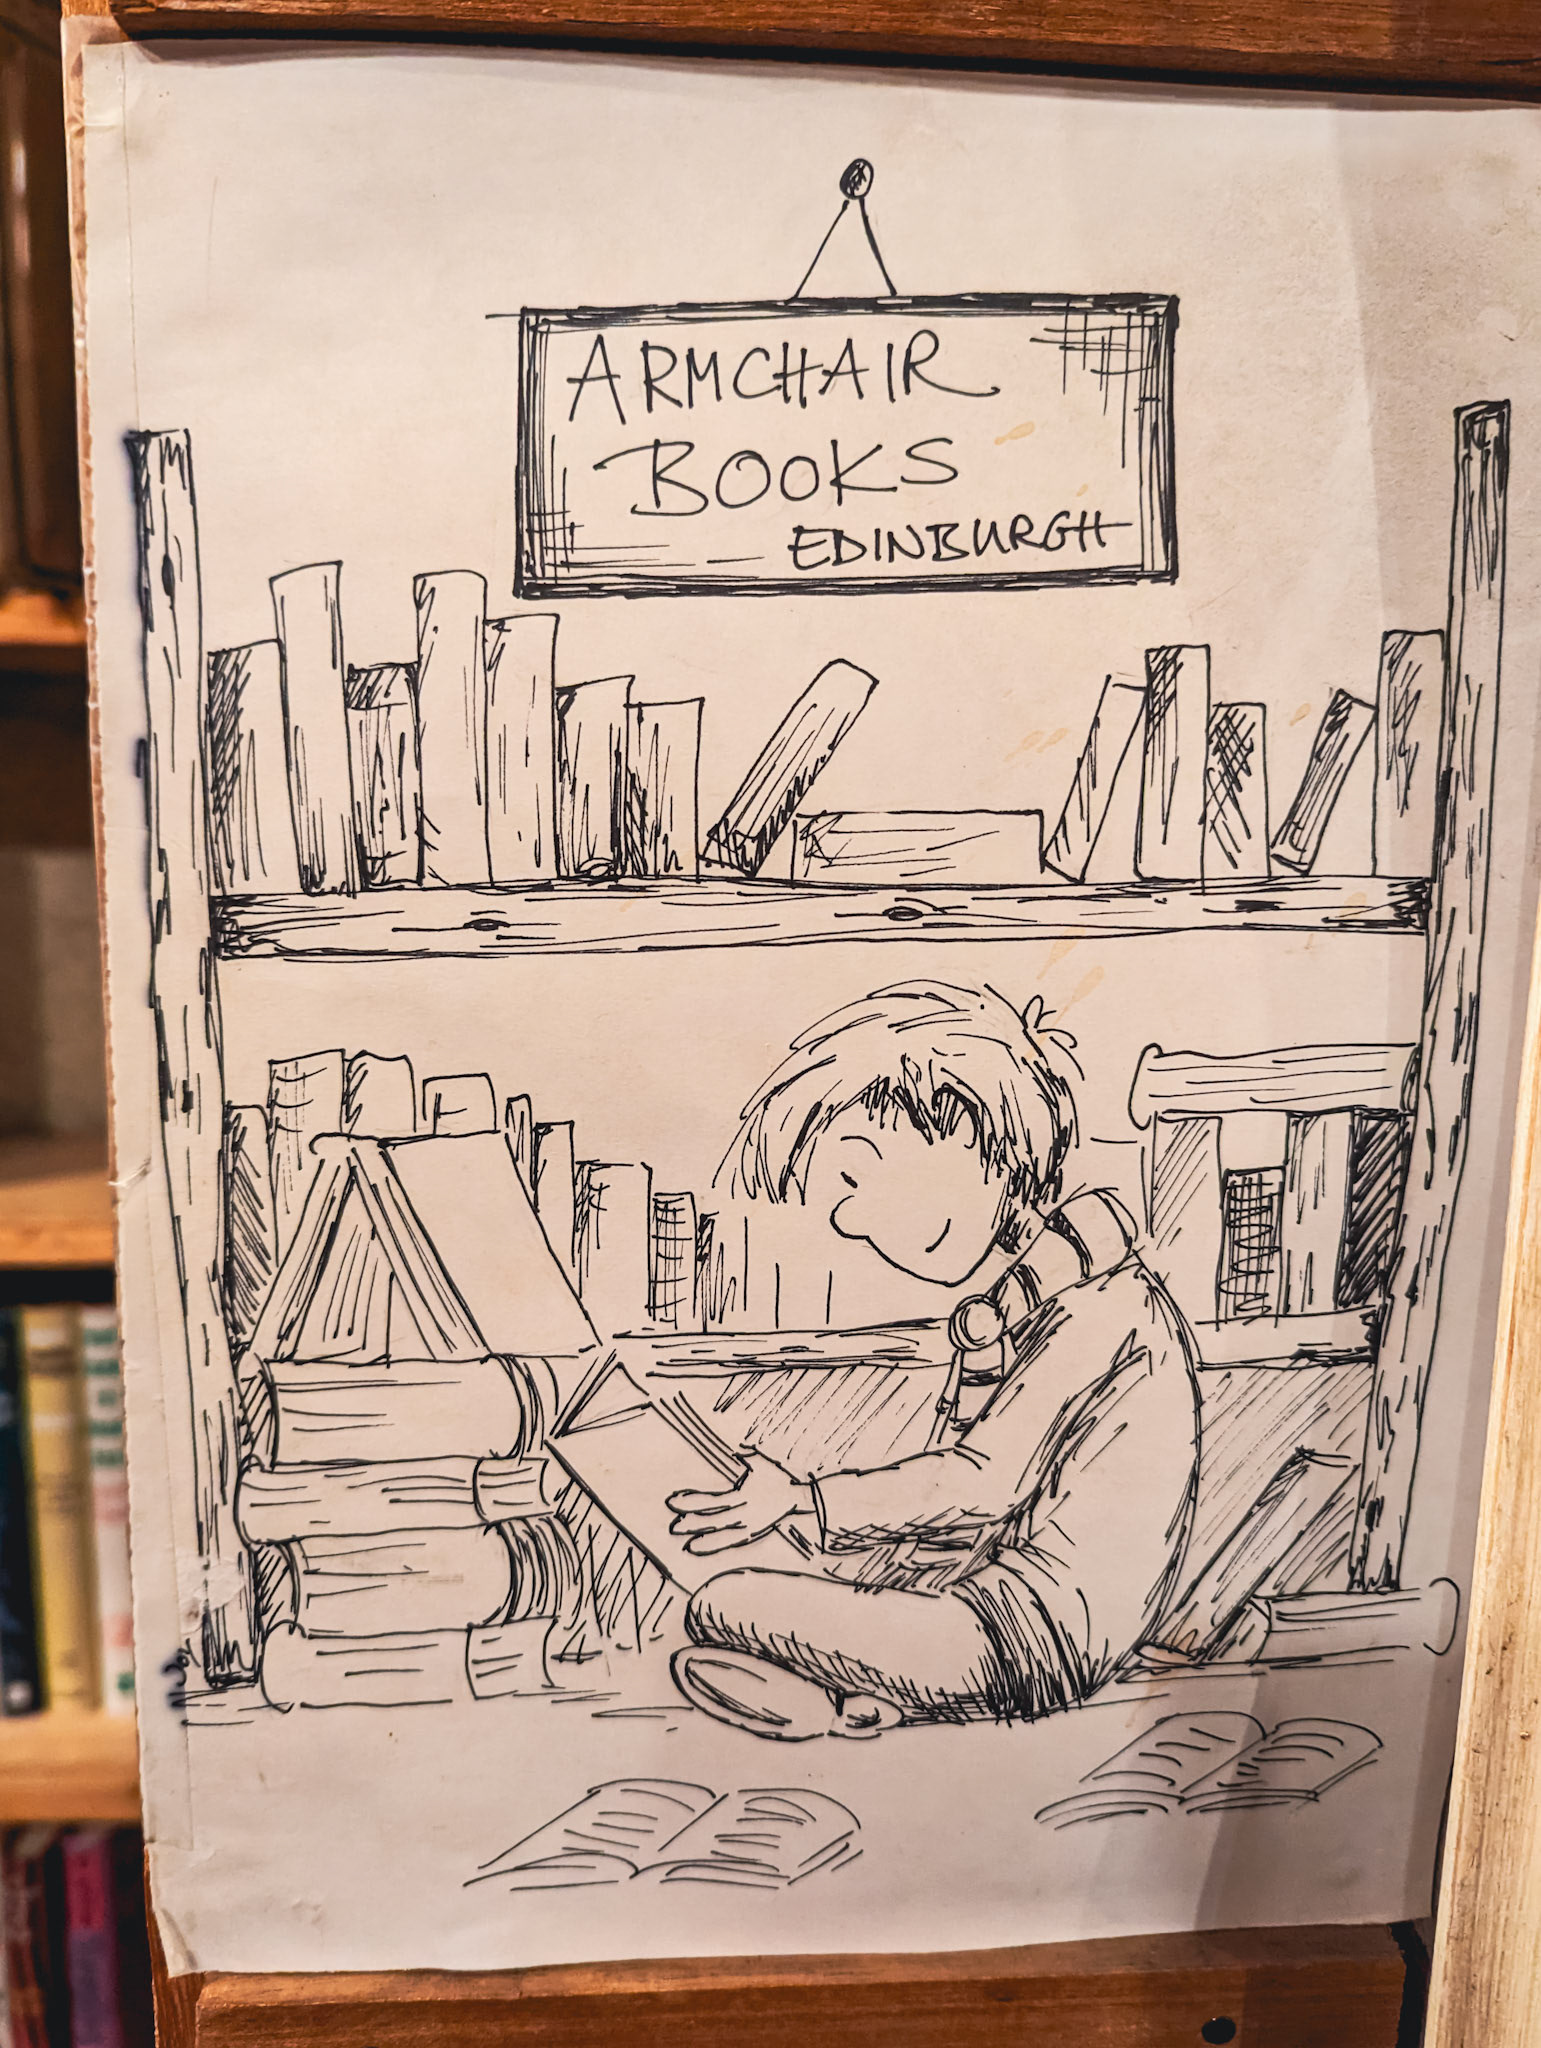 ARMCHAIR
BOOKS
EDINBURGH